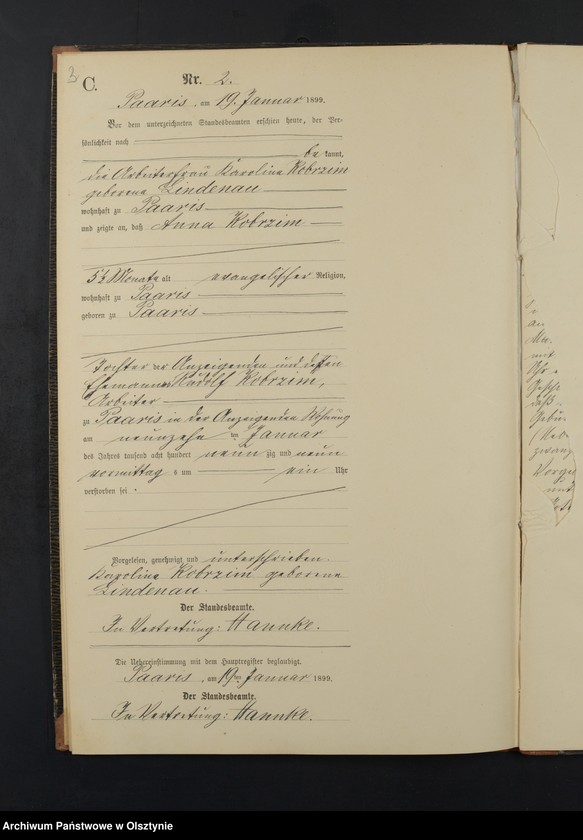 C.
Nr. 2.
Paaris, am 19. Januar 1899.
Vor dem unterzeichneten Standesbeamten erschien heute, der Per-
sönlichkeit nach
be kannt,
die Arbeiterfrau Karoline Kobrzim
geborene Lindenau
wohnhaft zu Paaris
und zeigte an, daß Anna Kobrzim
5½ Monate alt evangelischer Religion,
wohnhaft zu Paaris
geboren zu Paaris
Tochter der Anzeigenden und dessen
Ehemannes Rudolf Kobrzim,
Arbeiter
zu Paaris in der Anzeigenden Wohnung
am neunzehn ten Januar
des Jahres tausend acht hundert neun zig und neun
vormittag s um ein Uhr
verstorben sei.
Vorgelesen, genehmigt und unterschrieben.
Karoline Kobrzim geborene
Lindenau.
Der Standesbeamte.
In Vertretung: Hannke.
Die Uebereinstimmung mit dem Hauptregister beglaubigt.
Paaris, am 19ten Januar 1899.
Der Standesbeamte.
In Vertretung: Hannke.
Archiwum Państwowe w Olsztynie